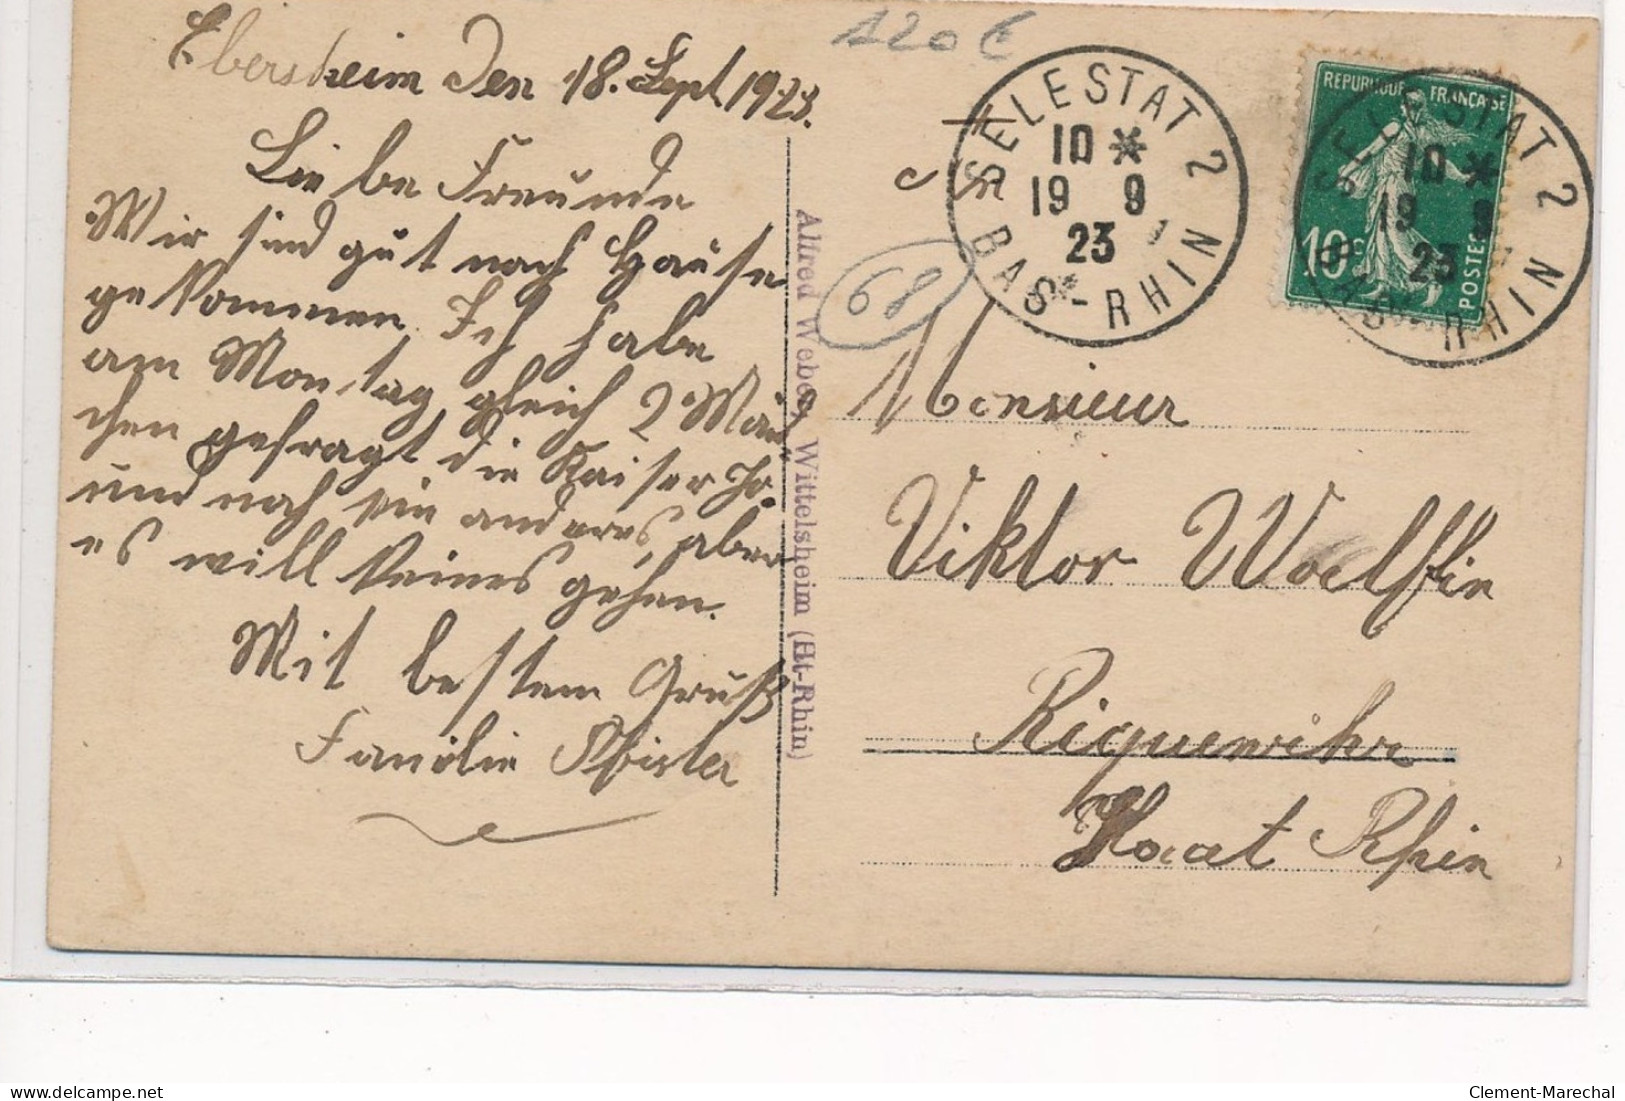 Ebersheim den 18. Sept. 1923.
Liebe Freunde
Wir sind gut nach Hause
gekommen. Ich habe
am Montag gleich 2 Mäd
chen gefragt die Kaiser Jo.
und noch ein anderes, aber
es will keines gehen.
Mit bestem Gruß
Familie Pfister
Alfred Weber, Wittelsheim (Ht-Rhin)
120 €
68
SELESTAT 2
10 *
19 9
23
BAS-RHIN
REPUBLIQUE FRANÇAISE
10c
POSTES
SELESTAT 2
10 *
19 9
23
BAS-RHIN
Monsieur
Viktor Woelflin
Riquewihr
Haut Rhin
Clement-Marechal